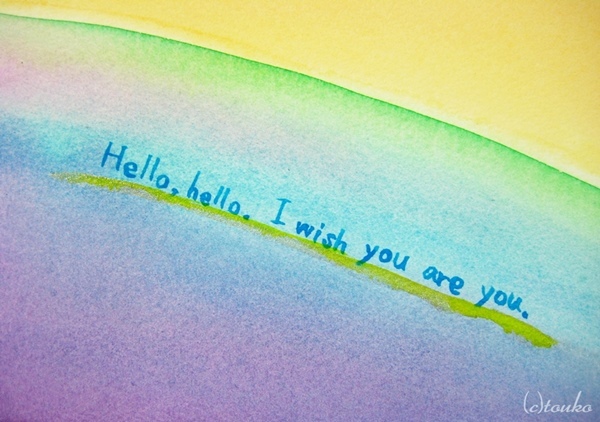 Hello, hello. I wish you are you.
(c)touko